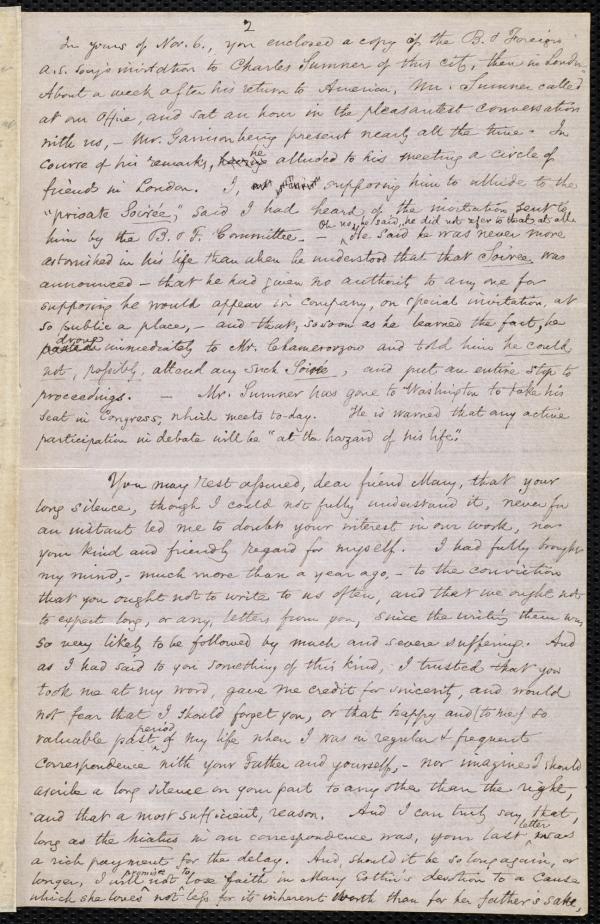 2
In yours of Nov. 6., you enclosed a copy of the B. & Foreign
A.S. Socy's invitation to Charles Sumner of this city, then in London.
About a week after his return to America, Mr. Sumner called
at our Office, and sat an hour in the pleasantest conversation
with us, – Mr. Garrison being present nearly all the time. In
course of his remarks, he alluded to his meeting a circle of
friends in London. I, supposing him to allude to the
"private Soirée," said I had heard of the invitation sent to
him by the B. & F. Committee. – Oh no, he said, he did not refer to that at all.
He said he was never more
astonished in his life than when he understood that that Soirée was
announced – that he had given no authority to any one for
supposing he would appear in company, on special invitation, at
so public a place, – and that, so soon as he learned the fact, he
drove immediately to Mr. Chamerovzow and told him he could
not, possibly, attend any such Soirée, and put an entire stop to
proceedings. – Mr. Sumner has gone to Washington to take his
seat in Congress, which meets to-day. He is warned that any active
participation in debate will be "at the hazard of his life".
You may rest assured, dear friend Mary, that your
long silence, though I could not fully understand it, never for
an instant led me to doubt your interest in our work, nor
your kind and friendly regard for myself. I had fully brought
my mind, – much more than a year ago, – to the conviction
that you ought not to write to us often, and that we ought not
to expect long, or any, letters from you, since the writing them was
so very likely to be followed by much and severe suffering. And
as I had said to you something of this kind, I trusted that you
took me at my word, gave me credit for sincerity, and would
not fear that I should forget you, or that happy and (to me) so
valuable past period of my life when I was in regular & frequent
correspondence with your Father and yourself, – nor imagine I should
ascribe a long silence on your part to any other than the right,
and that a most sufficient, reason. And I can truly say, that,
long as the hiatus in our correspondence was, your last letter was
a rich payment for the delay. And, should it be so long again, or
longer, I will promise not to lose faith in Mary Estlin's devotion to a Cause
which she loves not less for its inherent worth than for her father's sake,